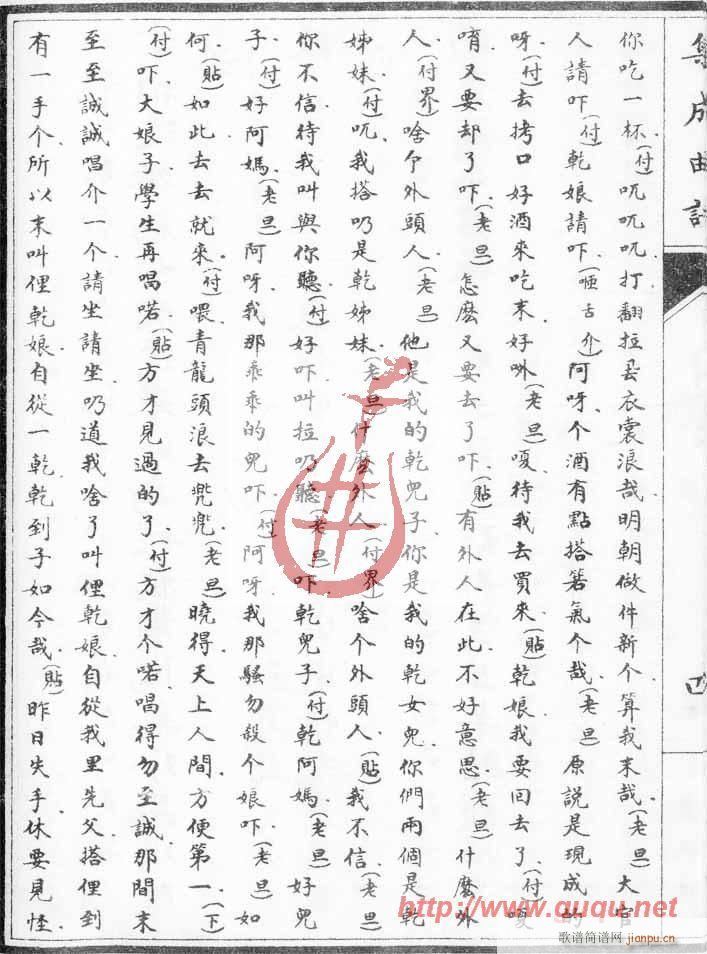 集成曲譜
四
你吃一杯(付)吭吭吭打翻拉丟衣裳浪哉明朝做件新个算我末哉(老旦)大官
人請吓(付)乾娘請吓(咂舌介)阿呀个酒有點搭箬氣个哉(老旦)原說是現成的
呀(付)去拷口好酒來吃末好㖸(老旦)嗄待我去買來(貼)乾娘我要回去了(付)嗄
唷又要却了吓(老旦)怎麼又要去了吓(貼)有外人在此不好意思(老旦)什麼外
人(付界)啥个外頭人(老旦)他是我的乾兒子你是我的乾女兒你們兩個是乾
姊妹(付)吭我搭乃是乾姊妹(老旦)什麼外人(付界)啥个外頭人(貼)我不信(老旦)
你不信待我叫與你聽(付)好吓叫拉乃聽(老旦)吓乾兒子(付)乾阿媽(老旦)好兒
子(付)好阿媽(老旦)阿呀我那乖乖的兒吓(付)阿呀我那騷勿殺个娘吓(老旦)如
何(貼)如此去去就來(付)喂青龍頭浪去兜兜(老旦)曉得天上人間方便第一(下)
(付)吓大娘子學生再唱喏(貼)方才見過的了(付)方才个喏唱得勿至誠那間末
至至誠誠唱介一个請坐請坐乃道我啥了叫俚乾娘自從我里先父搭俚到
有一手个所以末叫俚乾娘自從一乾乾到子如今哉(貼)昨日失手休要見怪
http://www.ququ.net
歌谱简谱网 jianpu.cn